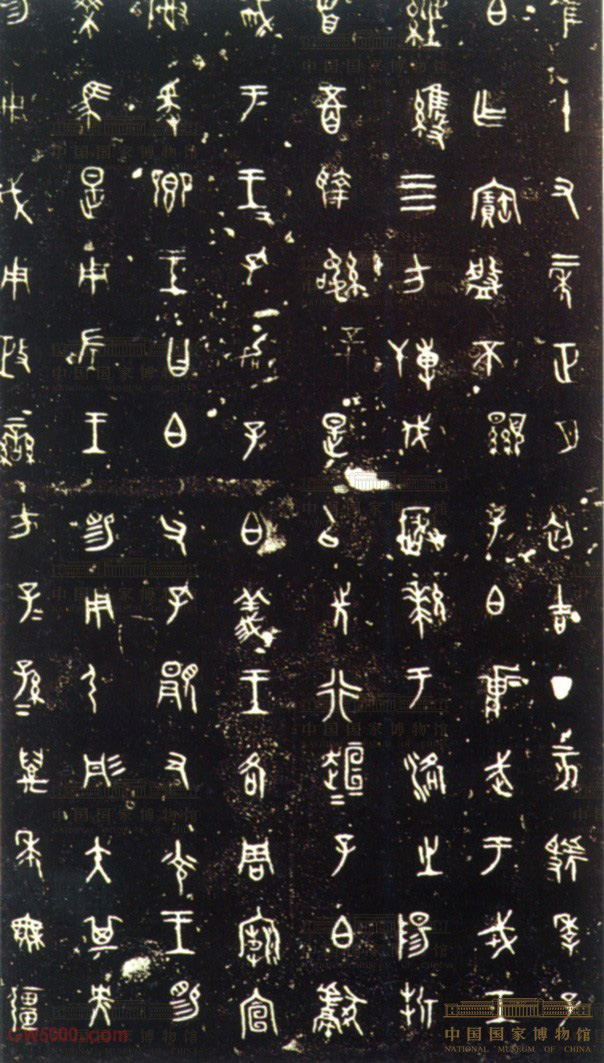 隹十又二年正月初吉丁亥虢季子
白乍寶盤不顯子白壯武于戎工
經維四方搏伐玁狁于洛之陽折
首五百執訊五十是以先行桓=子白獻
馘于王=孔加子白義王各周廟宣
榭爰鄉王曰白父孔顯又光王睗
乘馬是用左王睗用弓彤矢其央
睗用戉用政蠻方子=孫=萬年無疆
中国国家博物馆
NATIONAL MUSEUM OF CHINA
GW5000.com